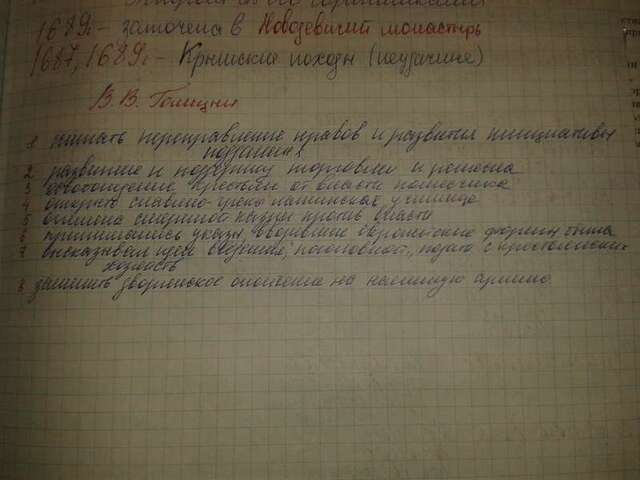 1689г – заточена в Новодевичий монастырь
1687, 1689г – Крымские походы (неудачные)
В. В. Голицын
1 считать переправление нравов и развития инициативы
подданных
2 развитие и поддержку торговли и ремесла
3 освобождение крестьян от власти помещика
4 открыто славяно-греко латинская училище
5 отмена смертной казни против власти
6 принимались указы, вводившие европейские формы быта
7 высказывал идеи с крестьянских
хозяйств
8 заменить дворянское ополчение на наемную армию.